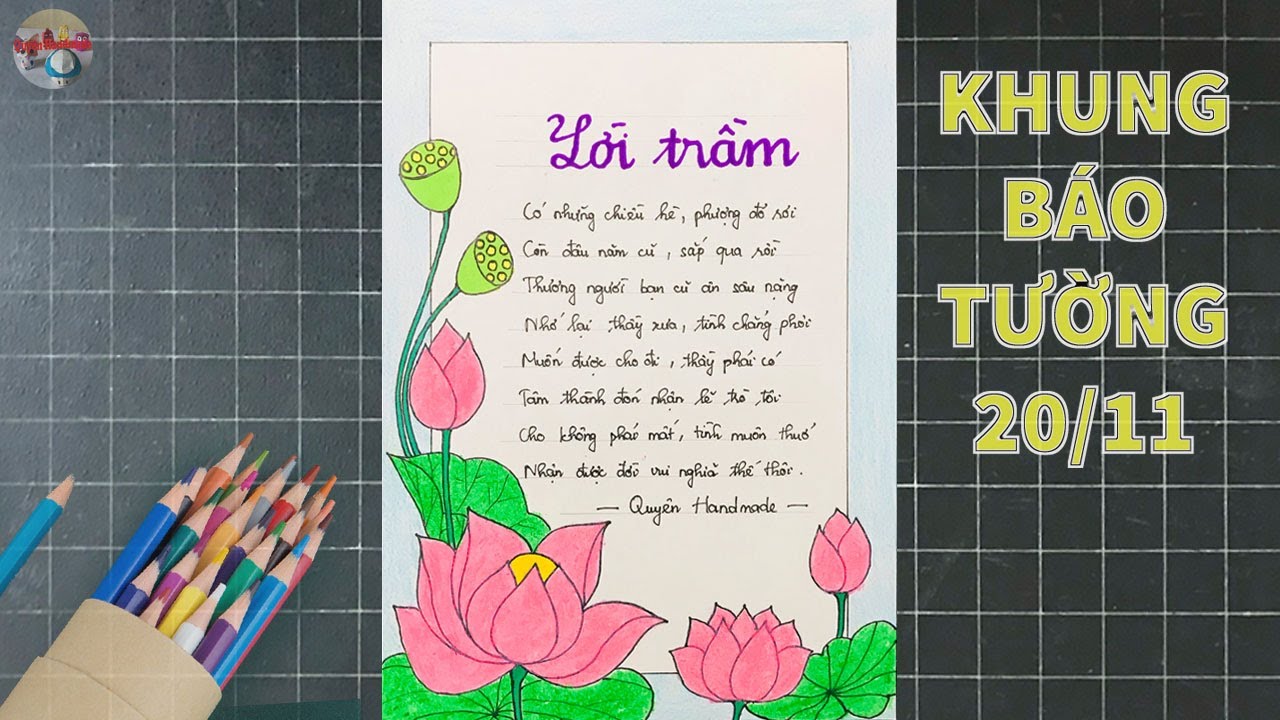 Lời trầm
Có những chiều hè, phượng đỏ rơi
Còn đâu năm cũ, sắp qua rồi
Thương người bạn cũ ân sâu nặng
Nhớ lại thầy xưa, tình chẳng phơi
Muốn được cho đi, thầy phải có
Tâm thành đón nhận lẽ trò tôi
Cho không phải mất, tình muôn thuở
Nhận được đời vui nghĩa thế thôi.
— Quyên Handmade —
KHUNG
BÁO
TƯỜNG
20/11